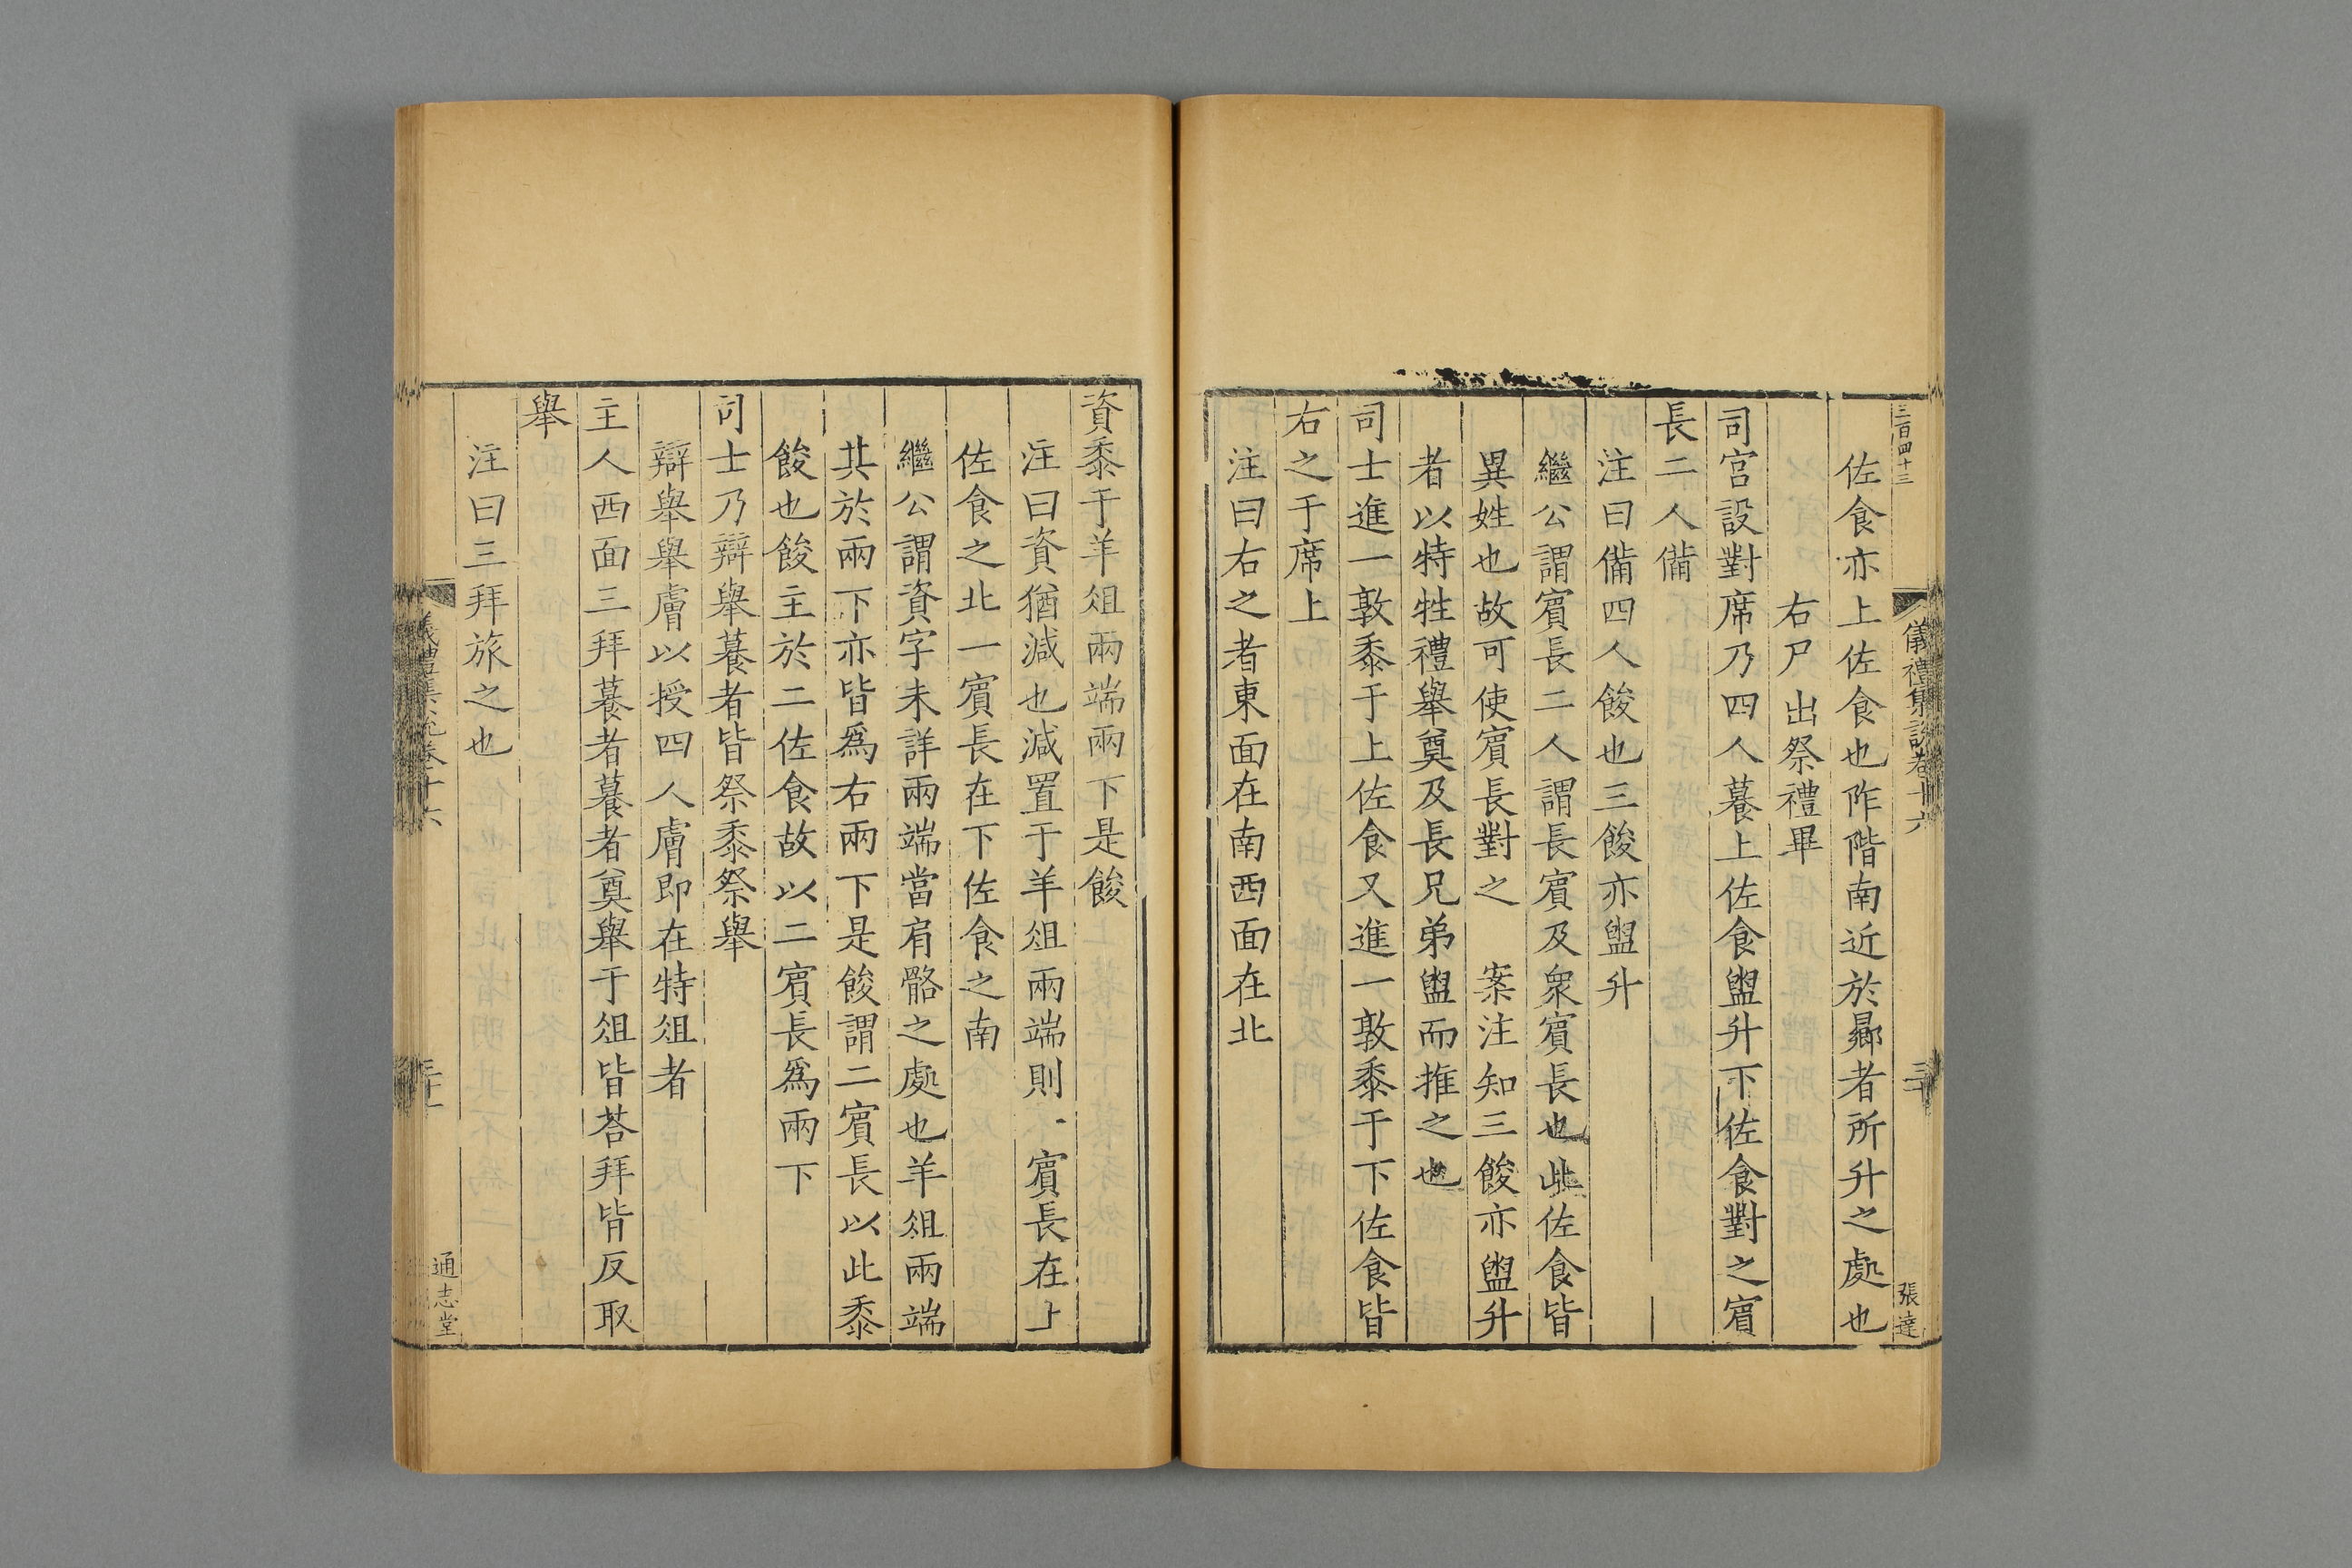 三百四十三
儀禮集說卷十六
張達
佐食亦上佐食也阼階南近於曏者所升之處也
右尸出祭禮畢
司宮設對席乃四人䭢上佐食盥升下佐食對之賔
長二人備
注曰備四人餕也三餕亦盥升
繼公謂賔長二人謂長賔及衆賔長也此佐食皆
異姓也故可使賔長對之 案注知三餕亦盥升
者以特牲禮舉奠及長兄弟盥而推之也
司士進一敦黍于上佐食又進一敦黍于下佐食皆
右之于席上
注曰右之者東面在南西面在北
資黍于羊俎兩端兩下是餕
注曰資猶減也減置于羊俎兩端則一賔長在上
佐食之北一賔長在下佐食之南
繼公謂資字未詳兩端當肩骼之處也羊俎兩端
其於兩下亦皆爲右兩下是餕謂二賔長以此黍
餕也餕主於二佐食故以二賔長爲兩下
司士乃辯舉䭢者皆祭黍祭舉
辯舉舉膚以授四人膚即在特俎者
主人西面三拜䭢者䭢者奠舉于俎皆荅拜皆反取
舉
注曰三拜旅之也
儀禮集說卷十六
通志堂